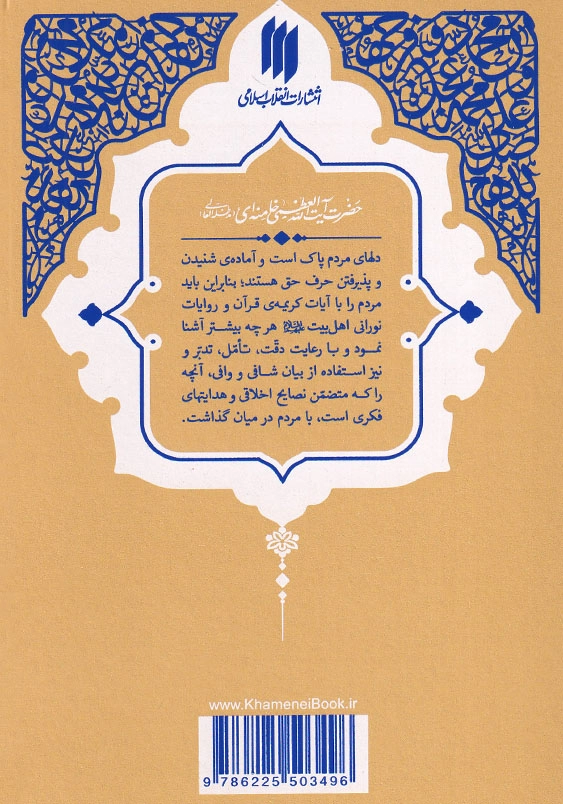 انتشارات انقلاب اسلامی
حضرت آیت‌الله العظمی خامنه‌ای (مدظله‌العالی)
دلهای مردم پاک است و آماده‌ی شنیدن
و پذیرفتن حرف حق هستند؛ بنابراین باید
مردم را با آیات کریمه‌ی قرآن و روایات
نورانی اهل‌بیت علیهم‌السلام هر چه بیشتر آشنا
نمود و با رعایت دقّت، تأمّل، تدبّر و
نیز استفاده از بیان شافی و وافی، آنچه
را که متضمّن نصایح اخلاقی و هدایتهای
فکری است، با مردم در میان گذاشت.
www.KhameneiBook.ir
9 786225 503496